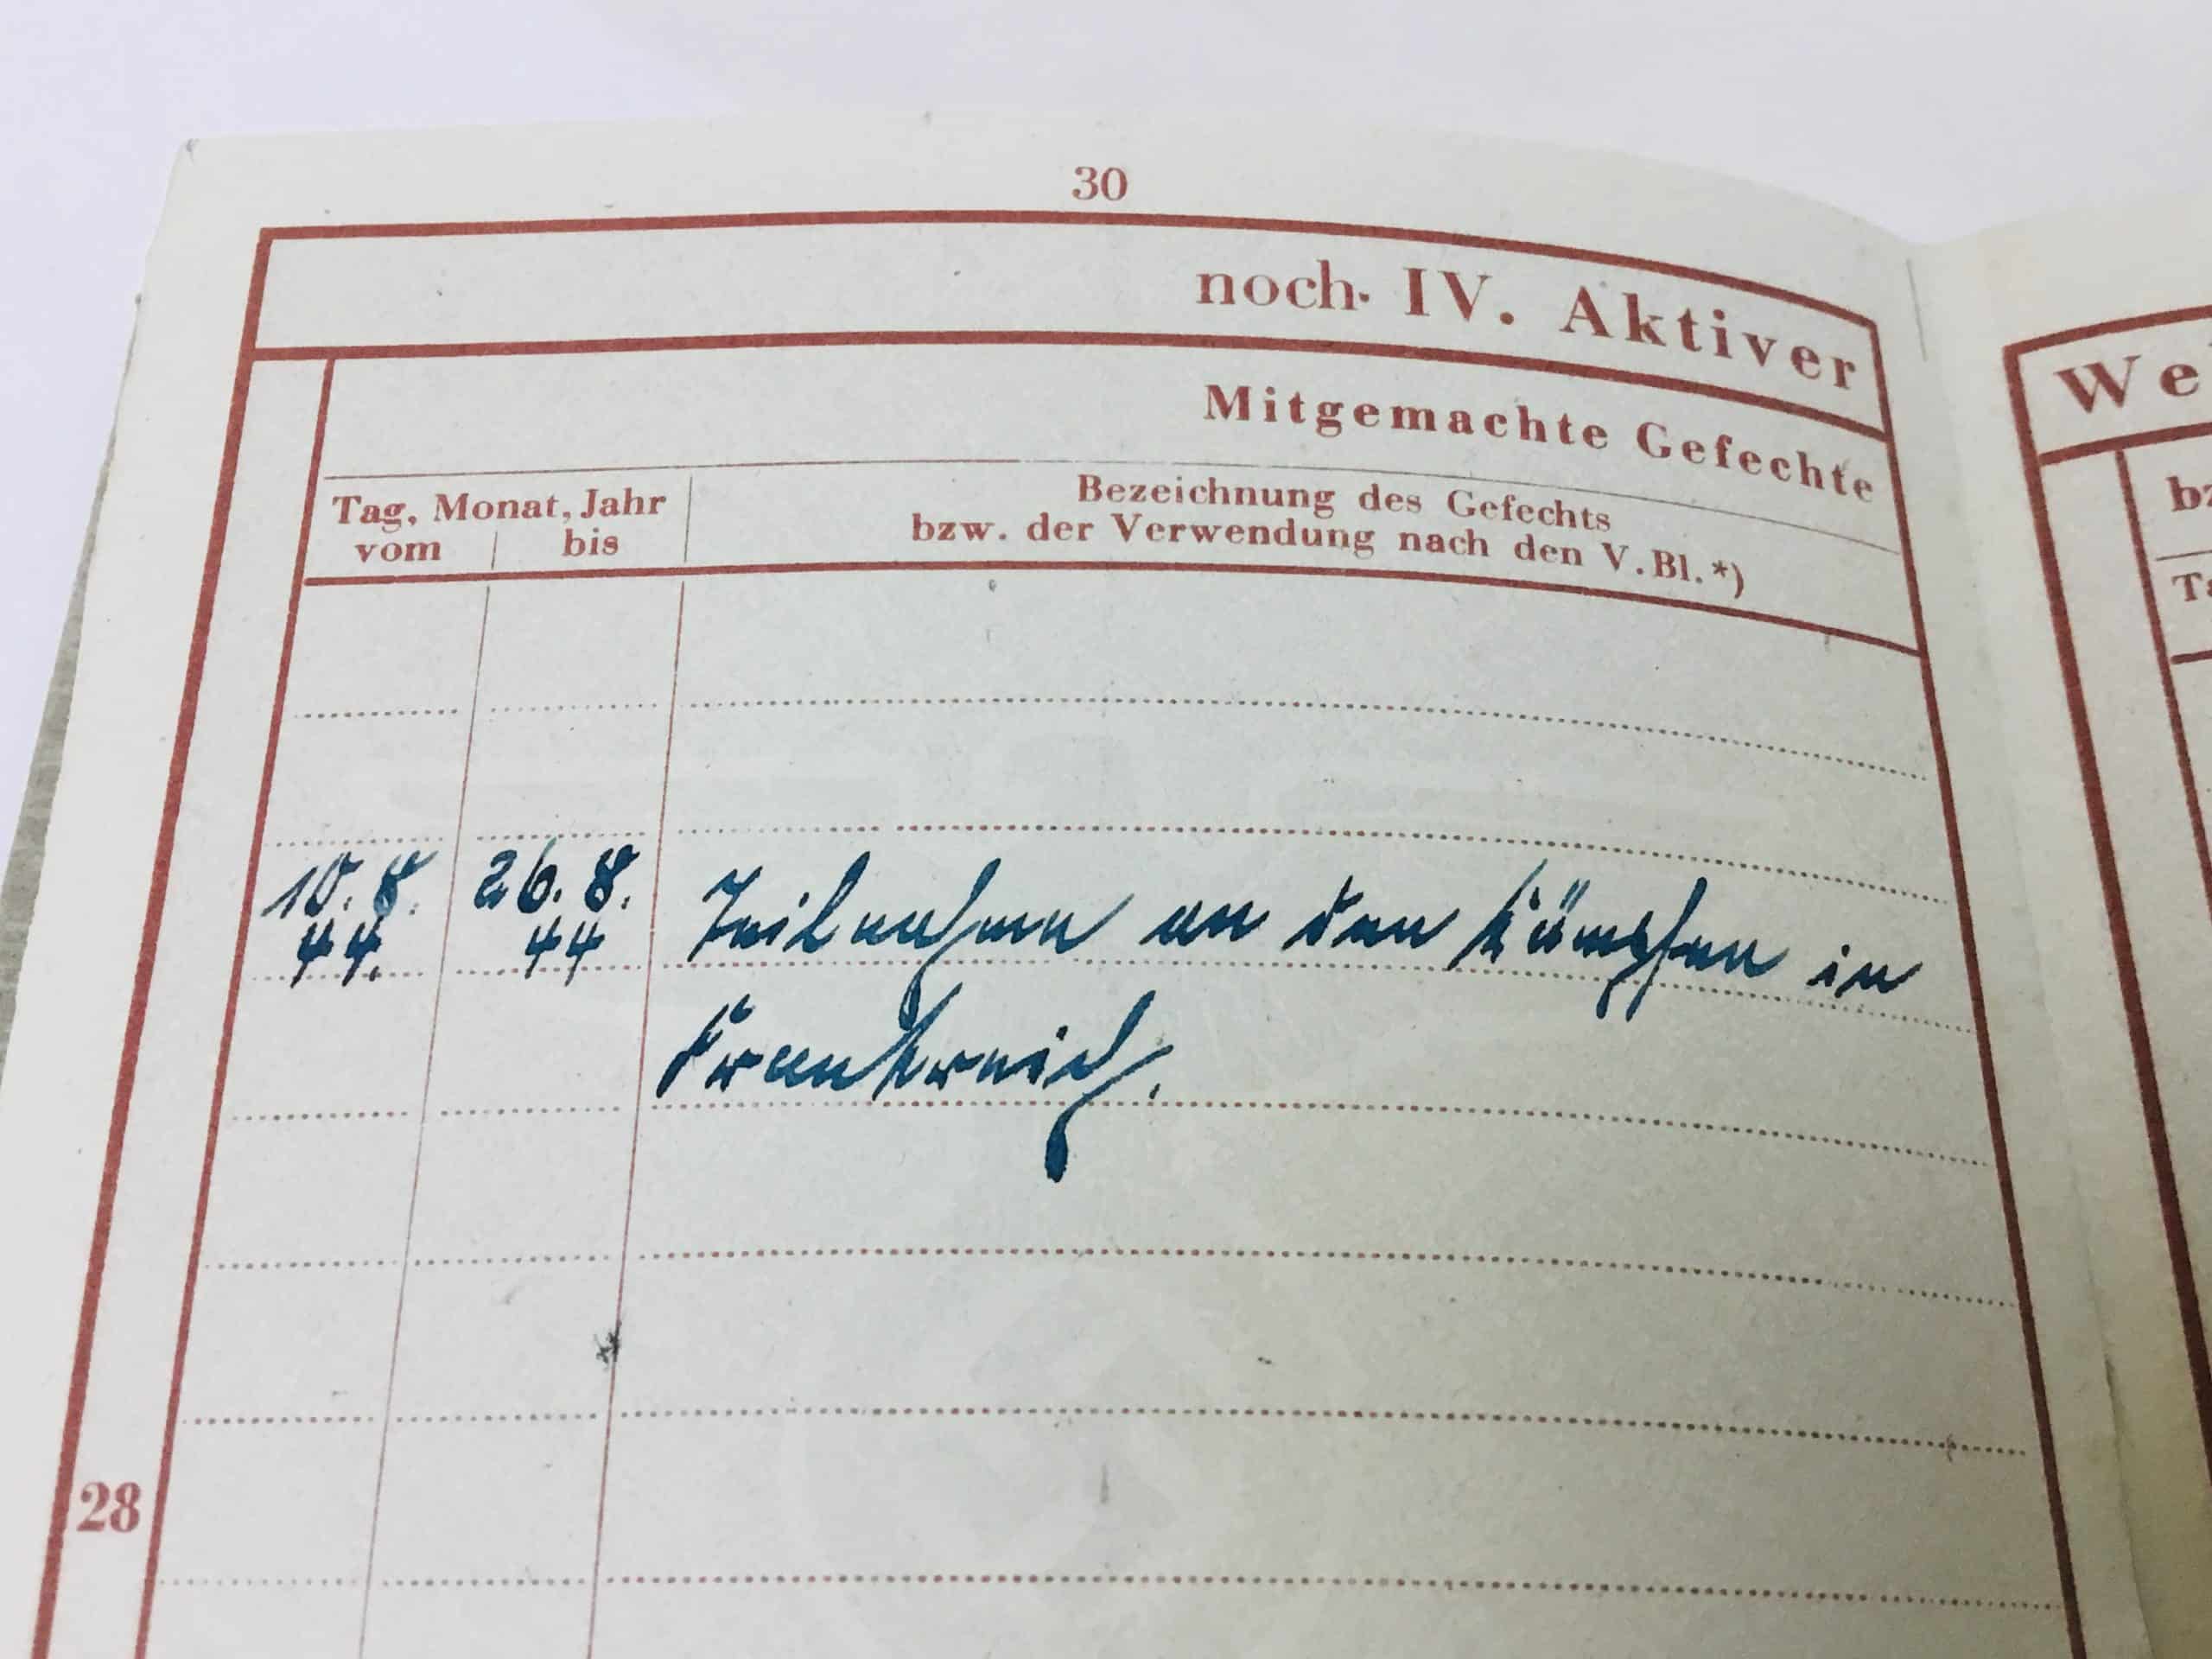 30
noch IV. Aktiver
Mitgemachte Gefechte
Tag, Monat, Jahr
vom bis
Bezeichnung des Gefechts
bzw. der Verwendung nach den V.Bl.*)
10.8. 26.8. Teilnahme an den Kämpfen in
44. 44
Frankreich.
28
We
bz
Ta